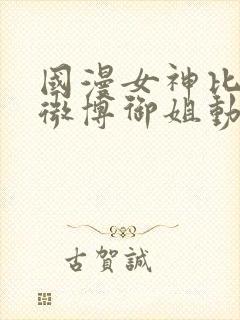 國漫女神比
微博御姐動
古賀誠